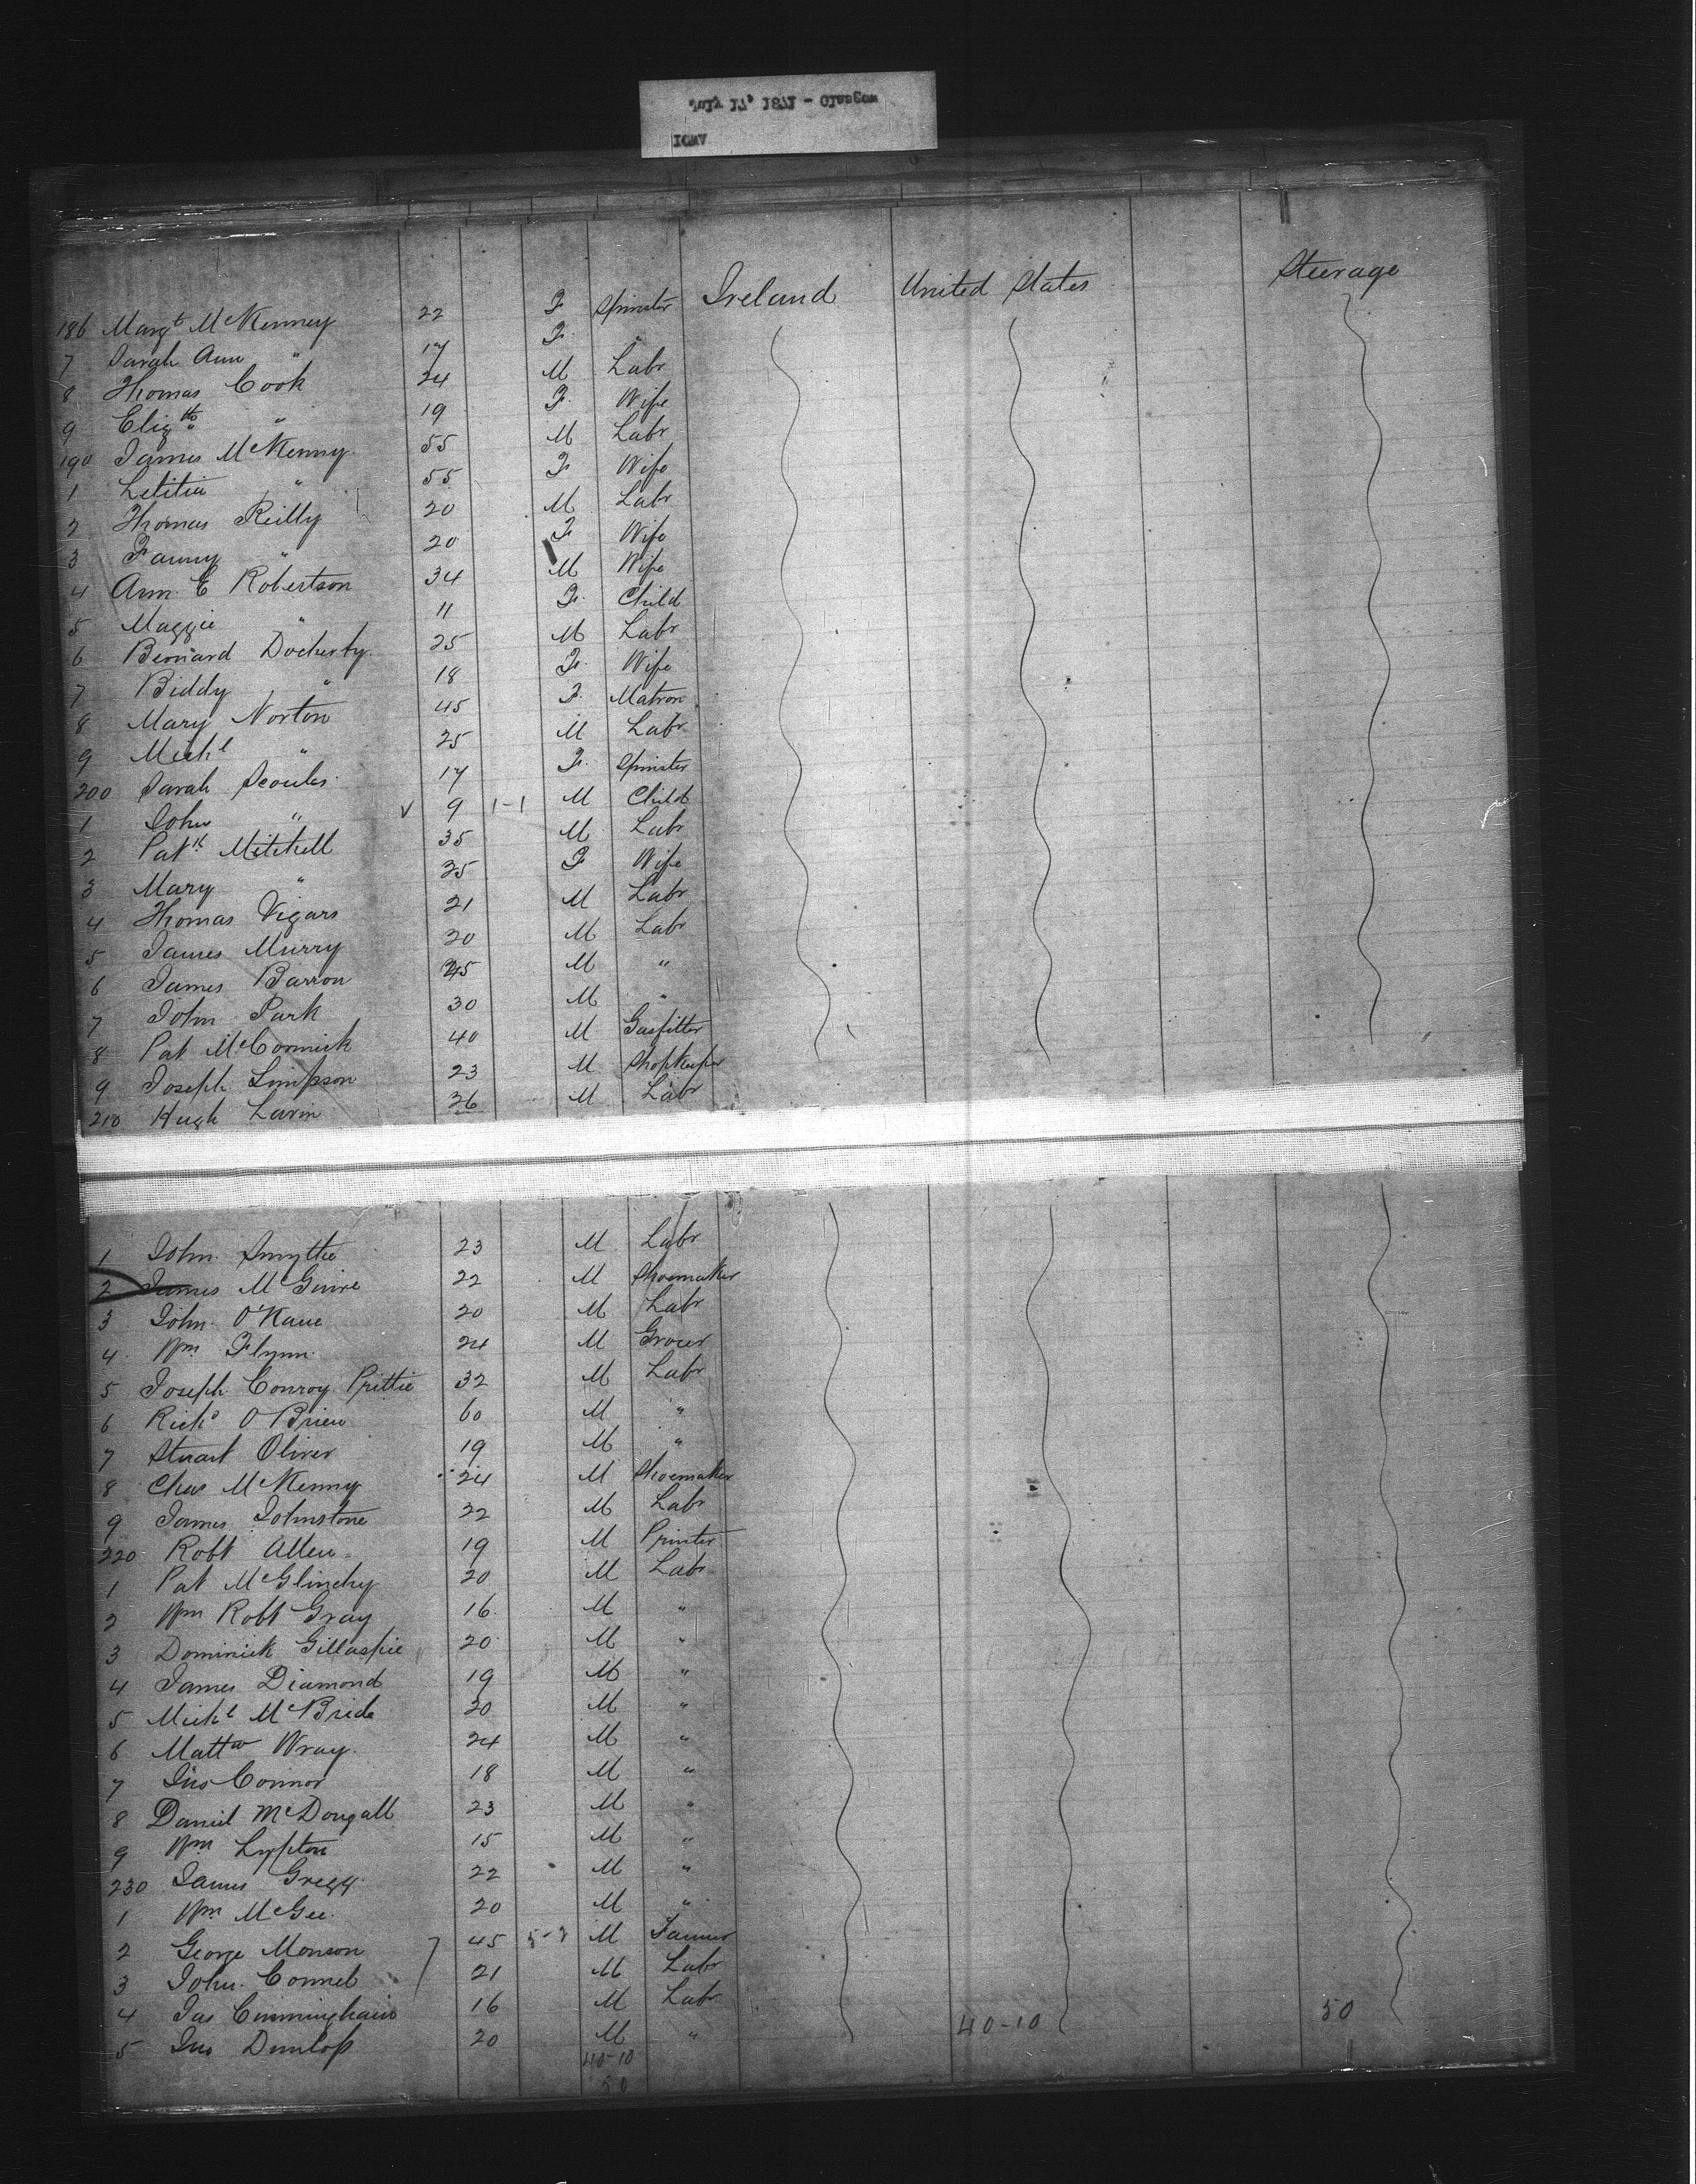 July 17, 1871 - Glasgow
IOWA
Ireland United States Steerage
186 Margt McKenney 22 F Spinster
7 Sarah Ann " 17 F "
8 Thomas Cook 24 M Labr
9 Elizth " 19 F Wife
190 James McKenny 55 M Labr
1 Letitia " 55 F Wife
2 Thomas Reilly 20 M Labr
3 Fanny " 20 F Wife
4 Ann E Robertson 34 M Wife
5 Maggie " 11 F Child
6 Bernard Docherty 25 M Labr
7 Biddy " 18 F Wife
8 Mary Norton 45 F Matron
9 Michl " 25 M Labr
200 Sarah Scoules 17 F Spinster
1 John " 9 1-1 M Child
2 Patk Mitchell 35 M Labr
3 Mary " 25 F Wife
4 Thomas Vigars 21 M Labr
5 James Murry 20 M Labr
6 James Barron 45 M "
7 John Park 30 M "
8 Pat McCormick 40 M Gasfitter
9 Joseph Simpson 23 M Shopkeeper
210 Hugh Lavin 26 M Labr
1 John Smythe 23 M Labr
2 James McGuire 22 M Shoemaker
3 John O'Kane 20 M Labr
4 Wm Flynn 24 M Grocer
5 Joseph Conroy Prittie 32 M Labr
6 Richd O'Brien 60 M "
7 Stuart Oliver 19 M "
8 Chas McKenny 24 M Shoemaker
9 James Johnstone 22 M Labr
220 Robt Allen 19 M Printer
1 Pat McGlinchy 20 M Labr
2 Wm Robt Gray 16 M "
3 Dominick Gillaspie 20 M "
4 James Diamond 19 M "
5 Michl McBride 20 M "
6 Mattw Wray 24 M "
7 Jno Connor 18 M "
8 Daniel McDougall 23 M "
9 Wm Lypton 15 M "
230 James Gregg 22 M "
1 Wm McGee 20 M "
2 George Monson 45 M Farmer
3 John Connel 21 M Labr
4 Jas Cunningham 16 M Labr
5 Jno Dunlop 20 M "
40-10 40-10 50
50